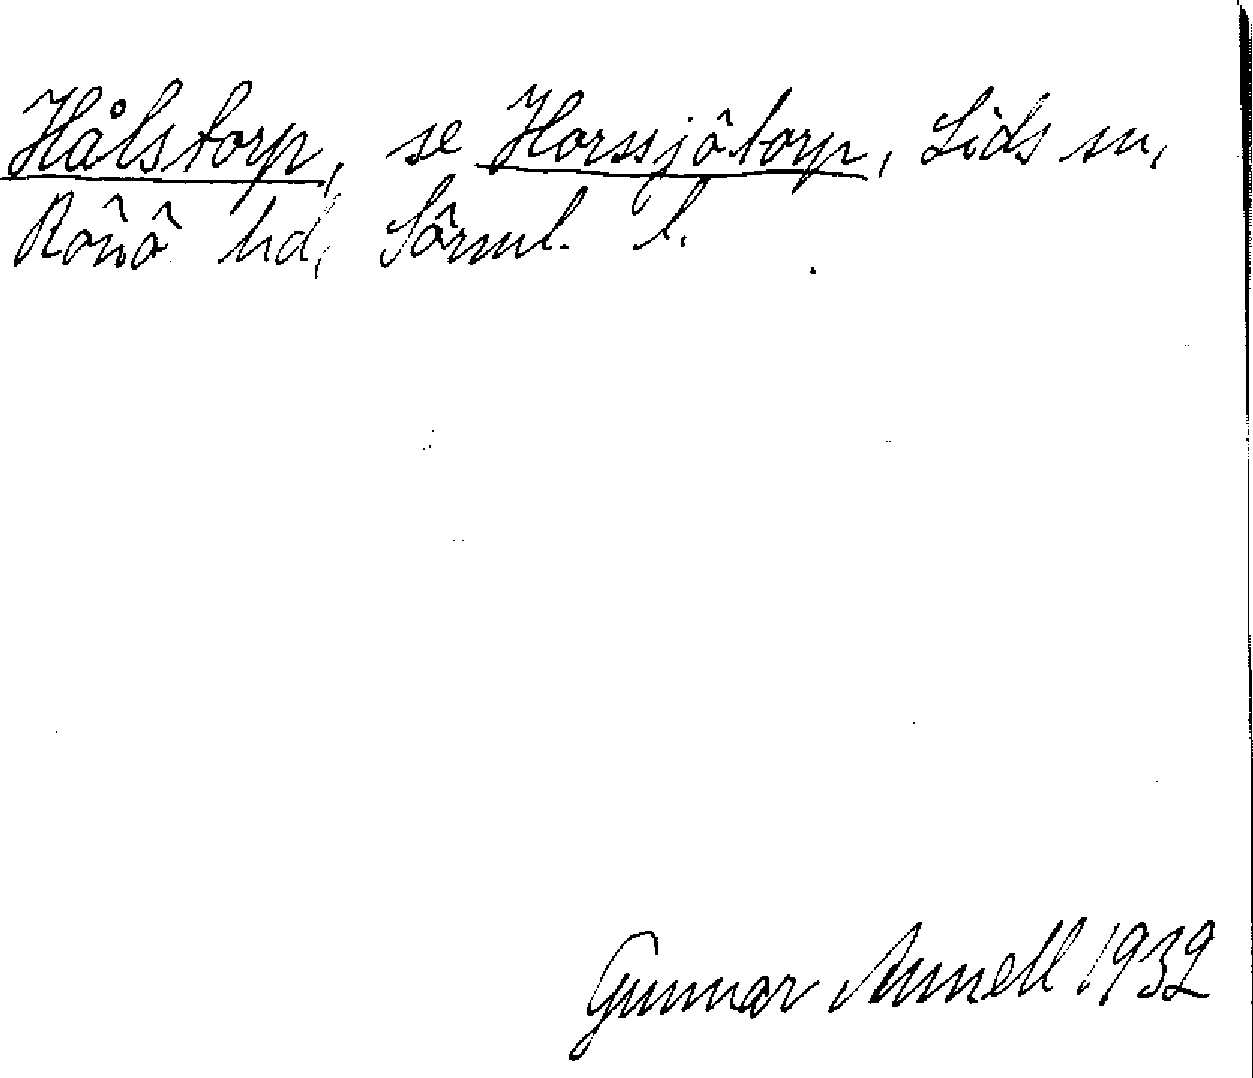 Hålstorp, se Horssjötorp, Lids sn,
Rönö hd, Sörml. l.
Gunnar Annell 1932